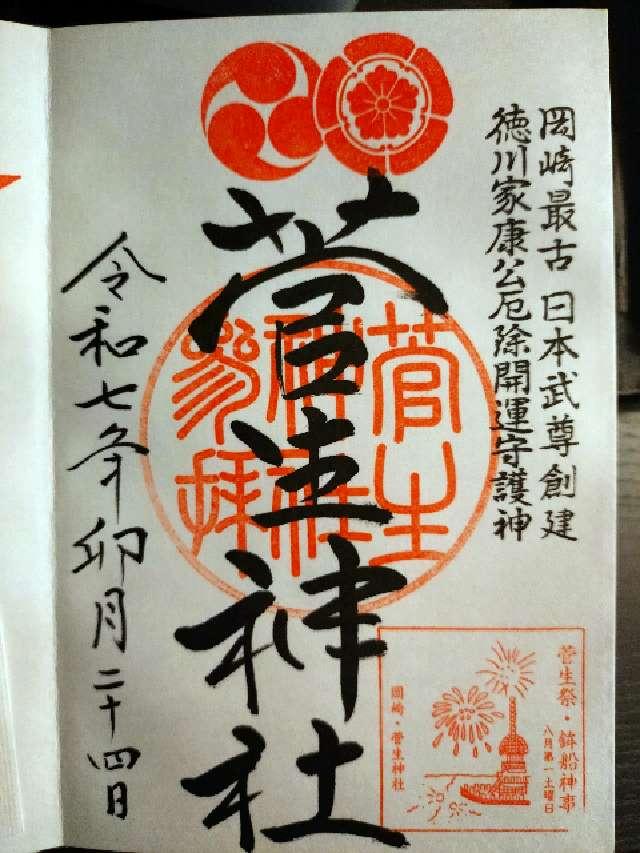 岡崎最古 日本武尊創建
徳川家康公厄除開運守護神
菅生神社
菅生神社参拝
令和七年卯月二十四日
菅生祭・鉾船神事
八月第一土曜日
岡崎・菅生神社